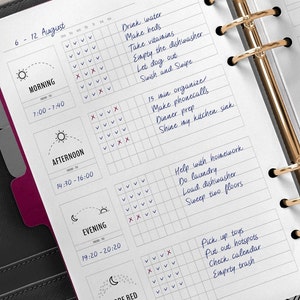 6 - 12 August
Drink water
Make beds
Take vitamins
Empty the dishwasher
Let dog out
Swish and Swipe
MORNING
7:00 - 7:40
15 min organize!
Make phonecalls
Dinner prep
Shine my kitchen sink
AFTERNOON
14:30 - 16:00
Help with homework
Do laundry
Load dishwasher
Sweep two floors
EVENING
19:20 - 20:20
Pick up toys
Put out hotspots
Check calendar
Empty trash